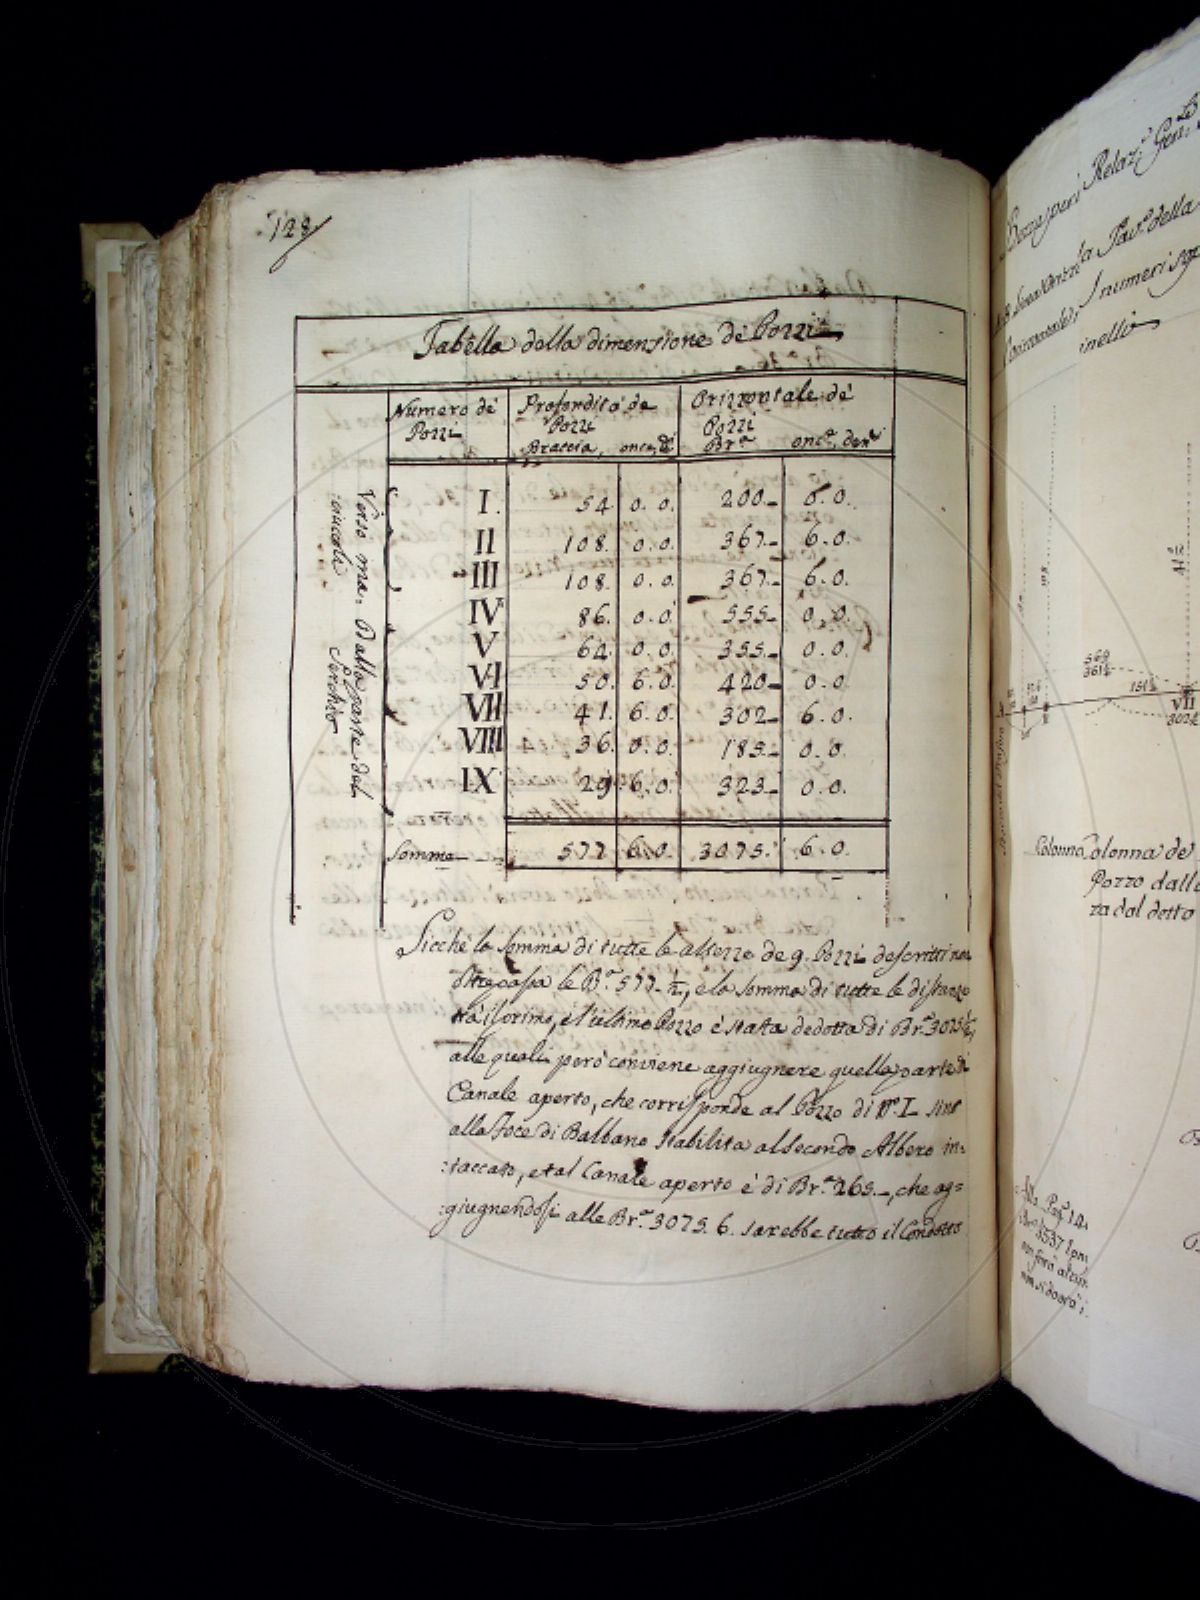 128
Tabella della dimensione de Pozzi
Numero de Pozzi
Profondità de Pozzi
Braccia, once, di
Orizzontale de Pozzi
Br.e onc.e, den.i
I. 54 0. 0. 200- 6. 0.
II 108. 0. 0. 367- 6. 0.
III 108. 0. 0. 367- 6. 0.
IV 86. 0. 0. 555- 0. 0.
V 64. 0. 0. 355- 0. 0.
VI 50. 6. 0. 420- 0. 0.
VII 41. 6. 0. 302- 6. 0.
VIII 36. 0. 0. 185- 0. 0.
IX 29. 6. 0. 323- 0. 0.
Somma 577 6. 0. 3075. 6. 0.
Verso ma. Dalla parte del
Serchio
Sicchè la somma di tutte le altezze de 9. Pozzi descritti non
oltrepassa le Br.e 577 ½, e la somma di tutte le distanze
trà il primo, e l'ultimo Pozzo è stata dedotta di Br.e 3075 ½,
alle quali però conviene aggiugnere quella parte di
Canale aperto, che corrisponde al Pozzo di N.° I. sino
alla Foce di Balbano stabilita al secondo Albero in=
:taccato, e tal Canale aperto è di Br.e 265.-, che ag=
:giugnendosi alle Br.e 3075. 6. sarebbe tutto il Condotto
Relaz.e Gen.le
Pav.o della
I numeri
569
361½
151½
VII
302½
Colonna
Colonna de
Pozzo dall
za dal detto
3537